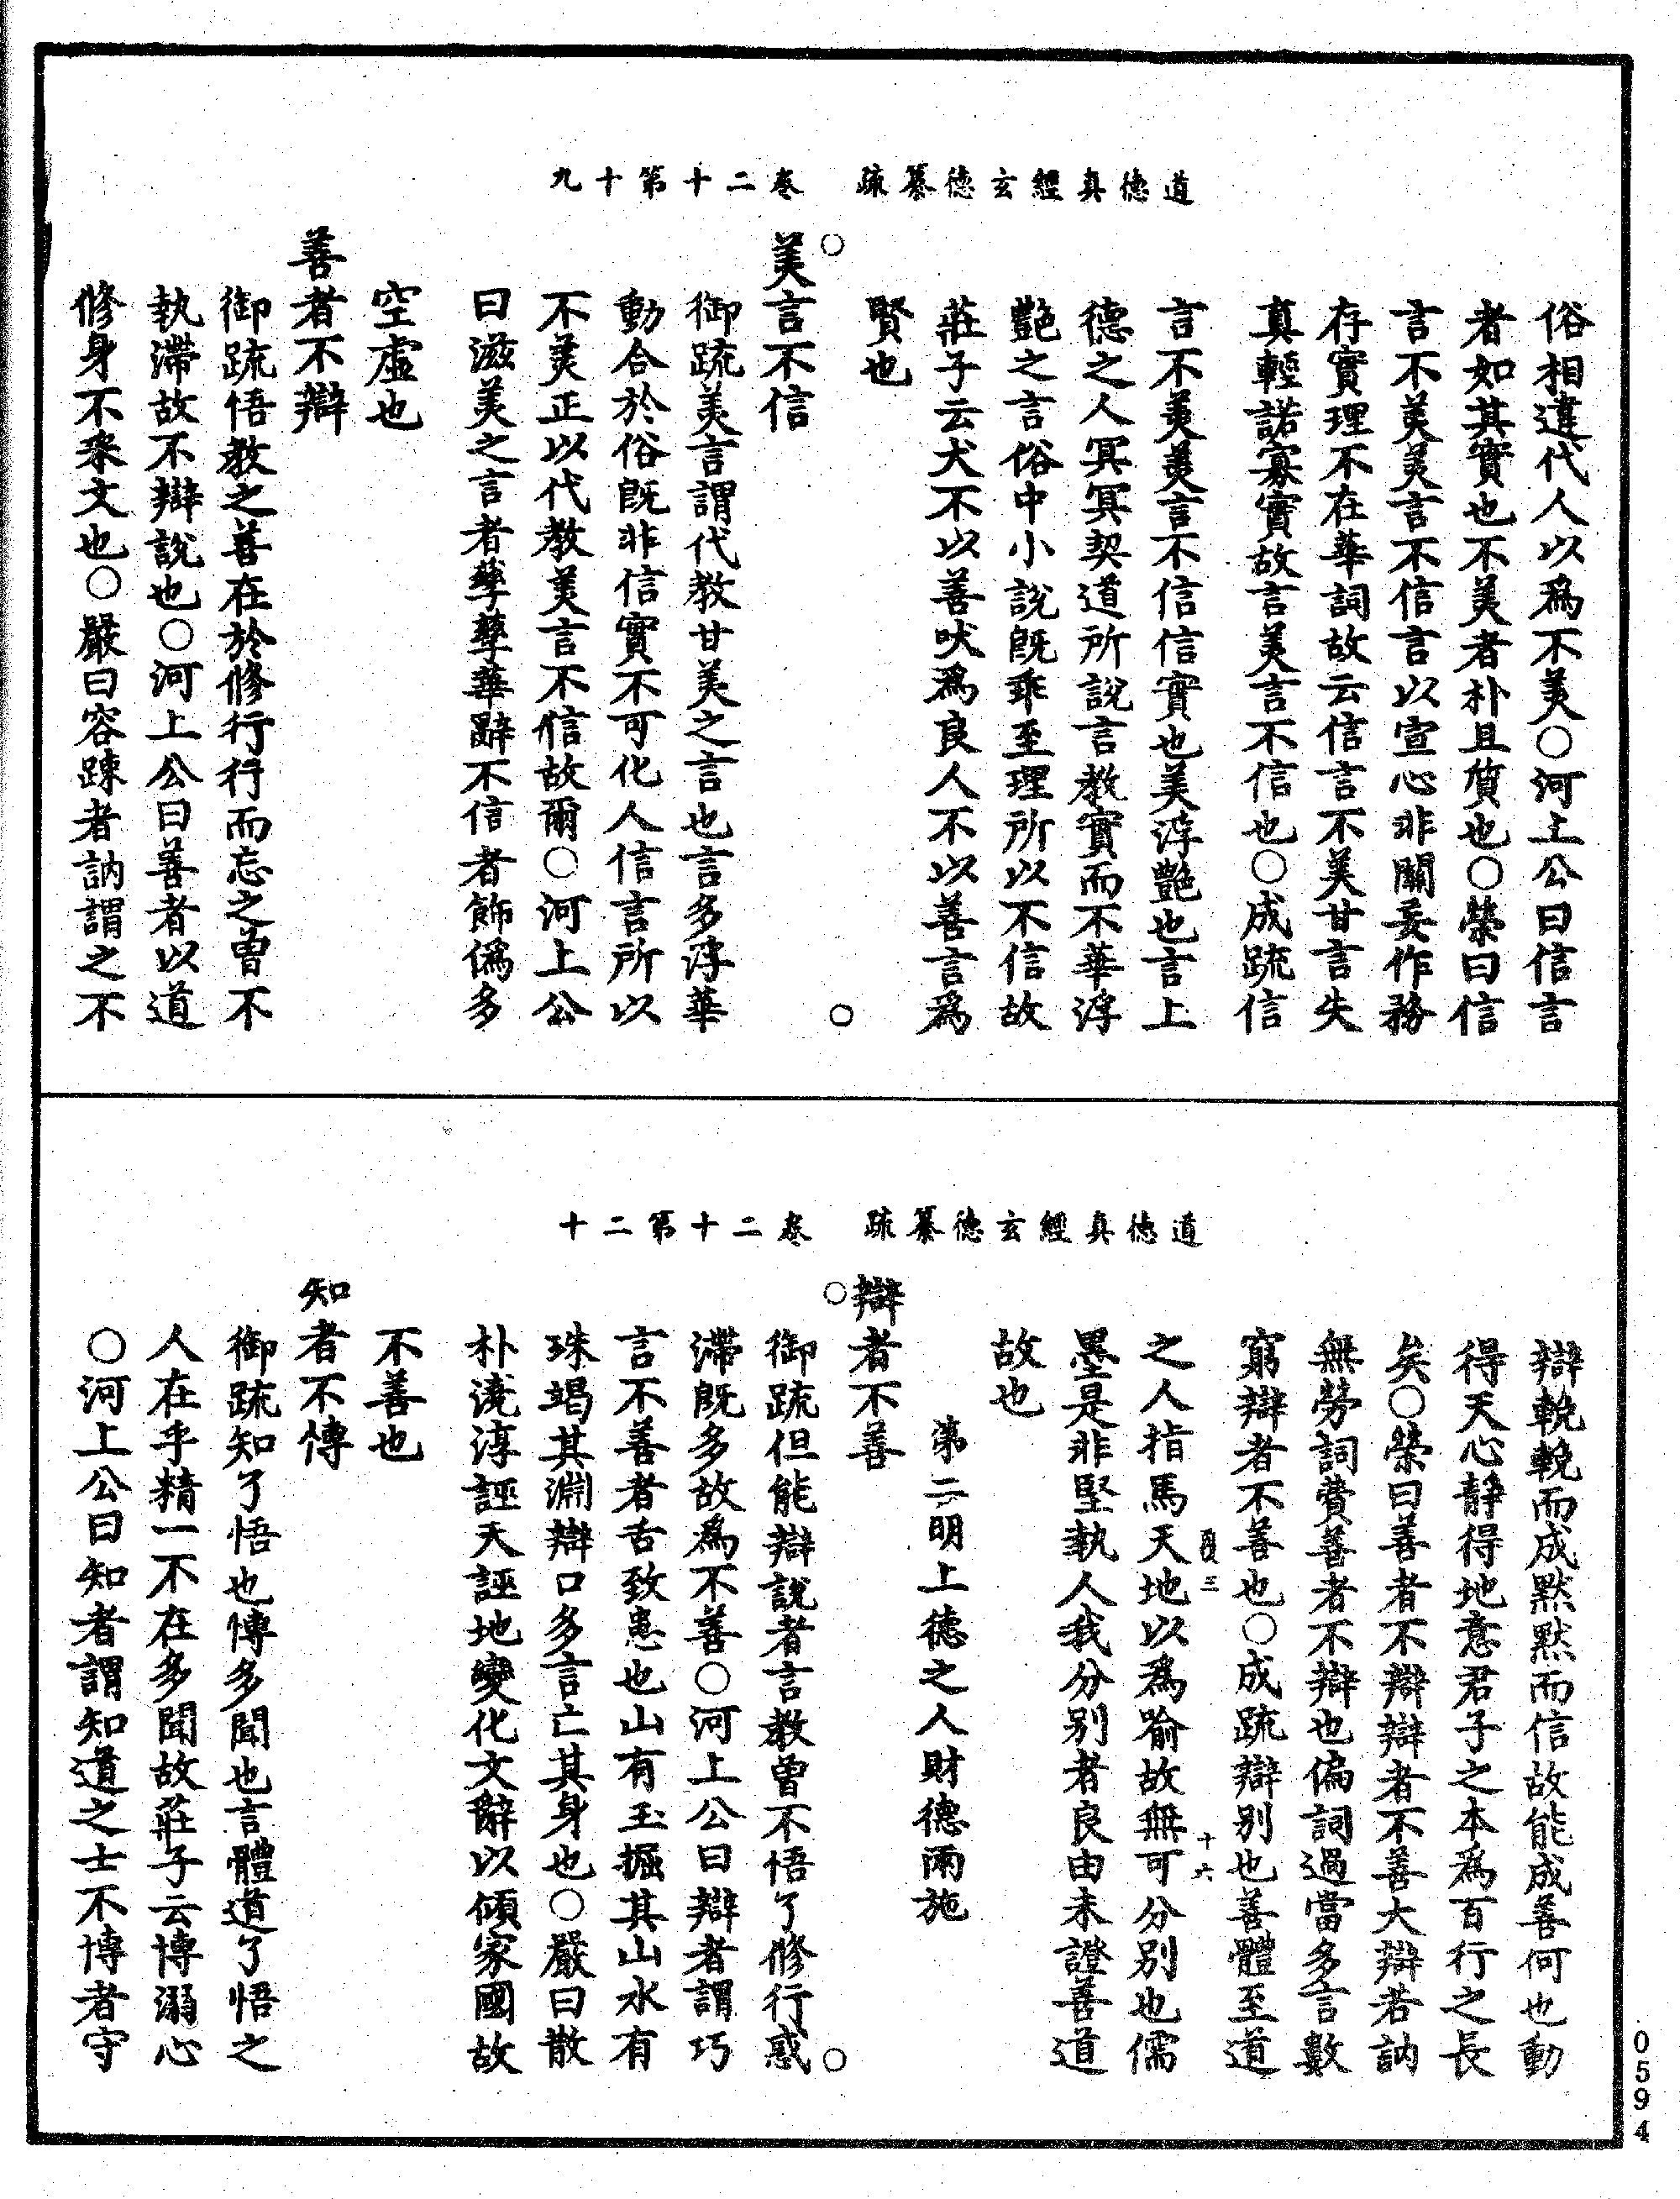 道德真經玄德纂疏　卷二十第十九
俗相違代人以爲不美○河上公曰信言
者如其實也不美者朴且質也○榮曰信
言不美美言不信言以宣心非關妄作務
存實理不在華詞故云信言不美甘言失
真輕諾寡實故言美言不信也○成疏信
言不美美言不信信實也美浮艷也言上
德之人冥冥契道所說言教實而不華浮
艷之言俗中小說既乖至理所以不信故
莊子云犬不以善吠爲良人不以善言爲
賢也
美言不信
御疏美言謂代教甘美之言也言多浮華
動合於俗既非信實不可化人信言所以
不美正以代教美言不信故爾○河上公
曰滋美之言者孳孳華辭不信者飾僞多
空虛也
善者不辯
御疏悟教之善在於修行行而忘之曾不
執滯故不辯說也○河上公曰善者以道
修身不綵文也○嚴曰容踈者訥謂之不
道德真經玄德纂疏　卷二十第二十
辯輓輓而成默默而信故能成善何也動
得天心靜得地意君子之本爲百行之長
矣○榮曰善者不辯辯者不善大辯若訥
無勞詞費善者不辯也偏詞過當多言數
窮辯者不善也○成疏辯别也善體至道
之人指馬天地以爲喻故無可分別也儒
墨是非堅執人我分别者良由未證善道
故也
第二明上德之人財德兩施
辯者不善
御疏但能辯說者言教曾不悟了修行惑
滯既多故爲不善○河上公曰辯者謂巧
言不善者舌致患也山有玉掘其山水有
珠竭其淵辯口多言亡其身也○嚴曰散
朴澆淳誣天誣地變化文辭以傾家國故
不善也
知者不博
御疏知了悟也博多聞也言體道了悟之
人在乎精一不在多聞故莊子云博溺心
○河上公曰知者謂知道之士不博者守
三
十六
0594